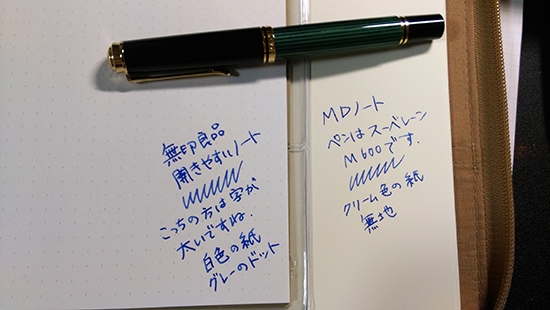 無印良品
開きやすいノート
こっちの方は字が
太いですね.
白色の紙
グレーのドット
MDノート
ペンはスーベレーン
M600です.
クリーム色の紙
無地